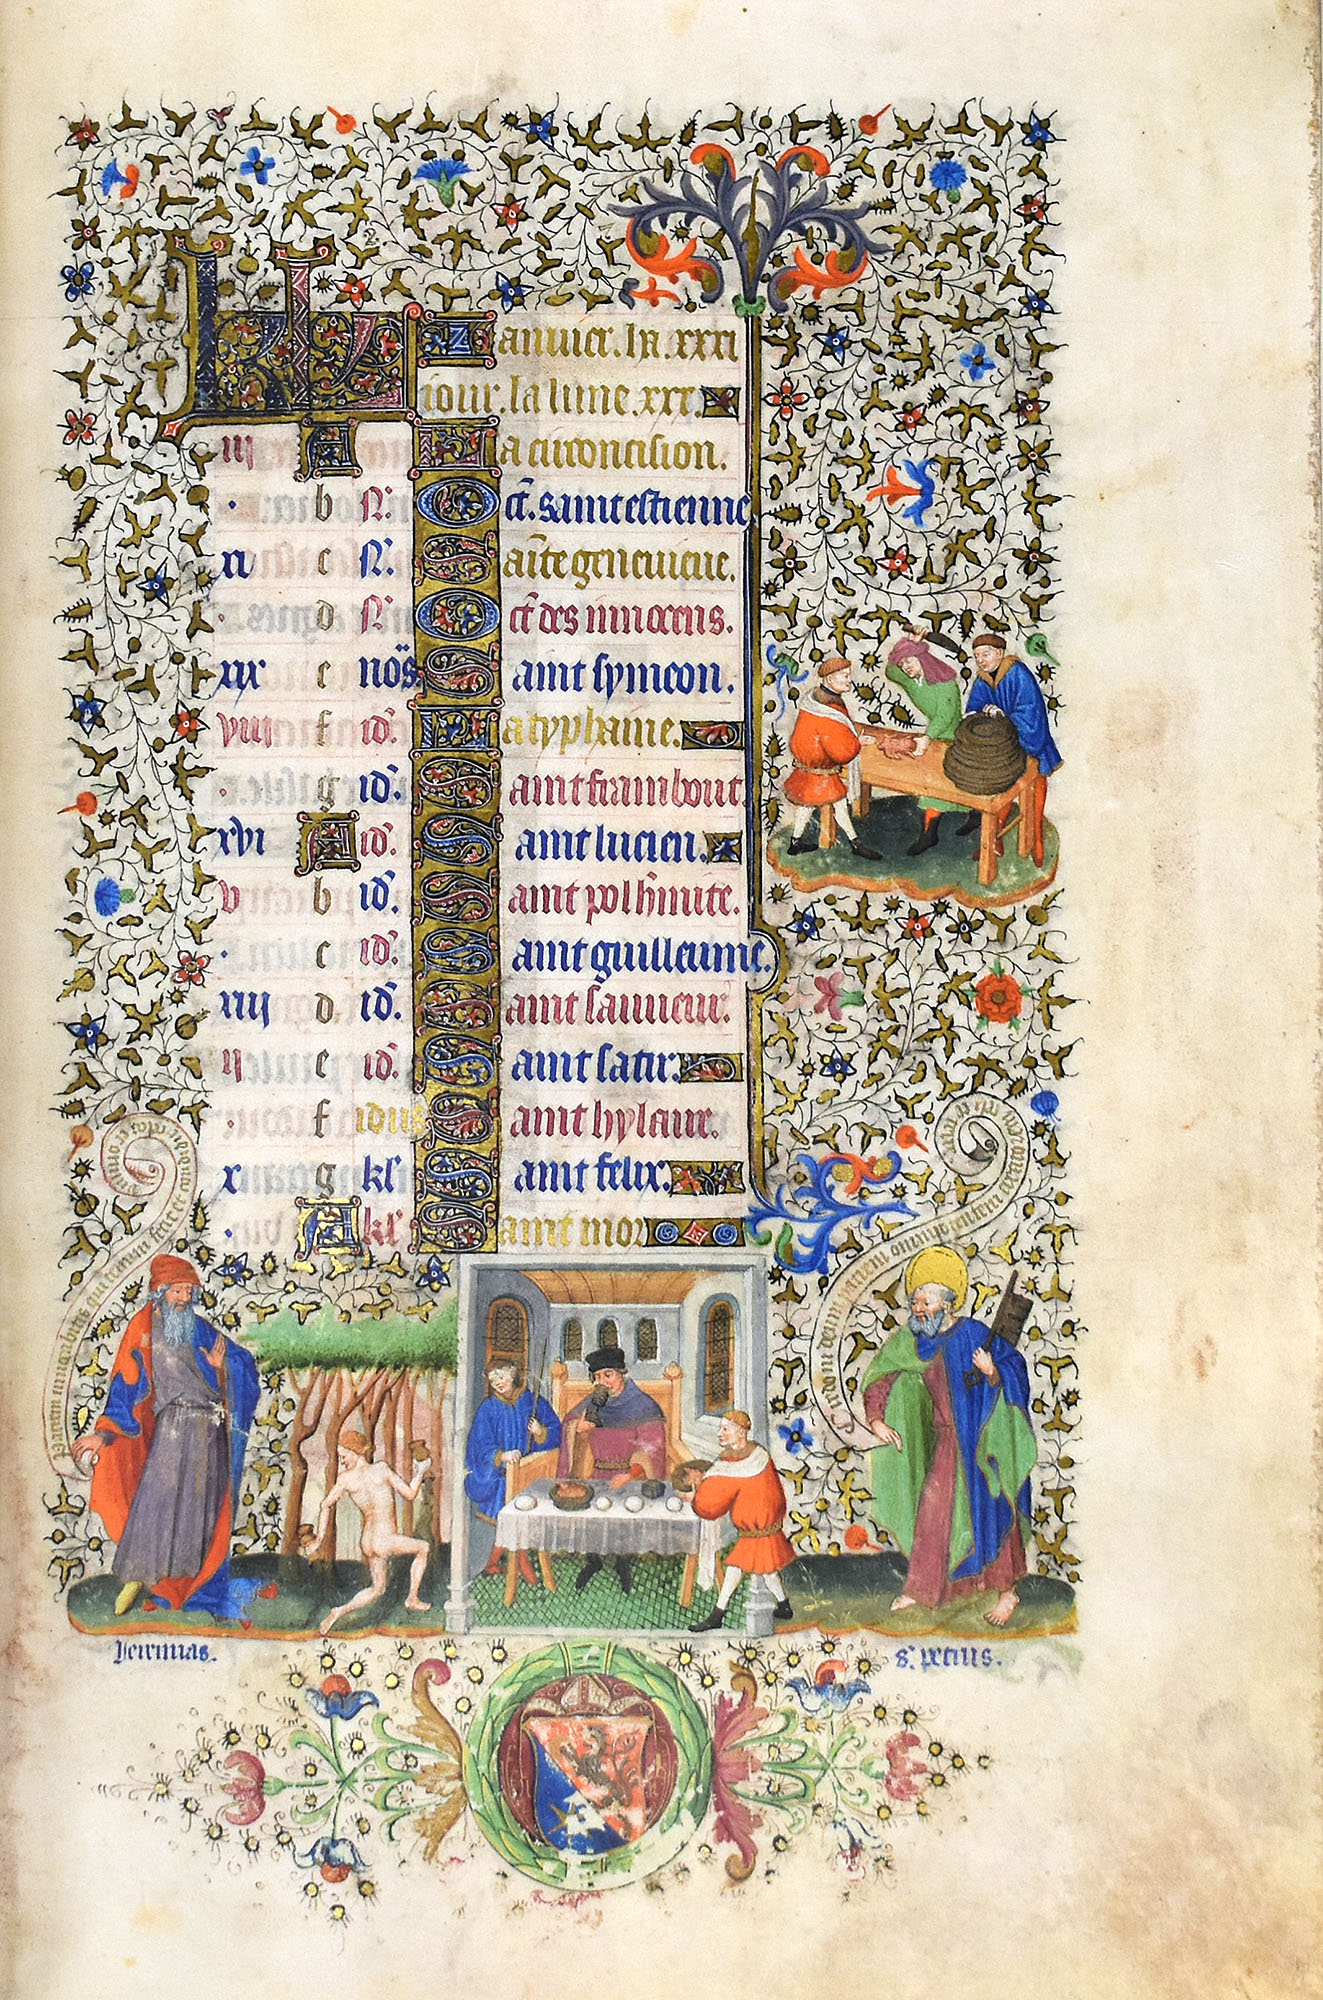 KL Januier. la. xxxi
iour. la lune. xxx.
iii A La circoncision.
b N. Oct̄. saint estienne
xi c N. Sainte geneuieue.
d N. Oct̄ des innocens.
xix e noñs. Saint symeon.
viii f id. La typhaine.
g id. Saint frambout
xvi A id. Saint lucien.
v b id. Saint pol h̄mite.
c id. Saint guilleaume.
xiiii d id. Saint sauueur.
ii e id. Saint satir.
f idus Saint hylaire.
x g kl Saint felix.
A kl Saint mor
Patrem inuocabitis qui terram fecit et condidit
Credo in deum patrem omnipotentem creatorem
Jeremias.
S. petrus.